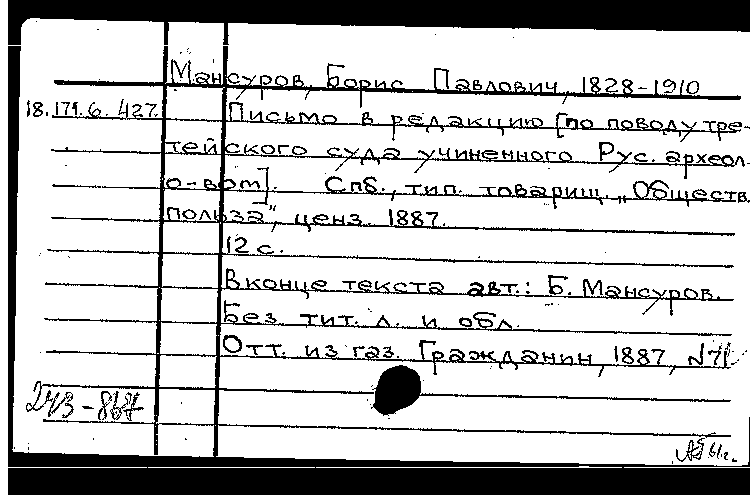 Мансуров, Борис Павлович, 1828-1910
18.171.6.427. Письмо в редакцию [по поводу тре-
тейского суда учиненного Рус. археол.
о-вом]. Спб., тип. товарищ. „Обществ.
польза", ценз. 1887.
12 с.
В конце текста авт.: Б. Мансуров.
Без тит. л. и обл.
Отт. из газ. Гражданин, 1887, №71
243-867